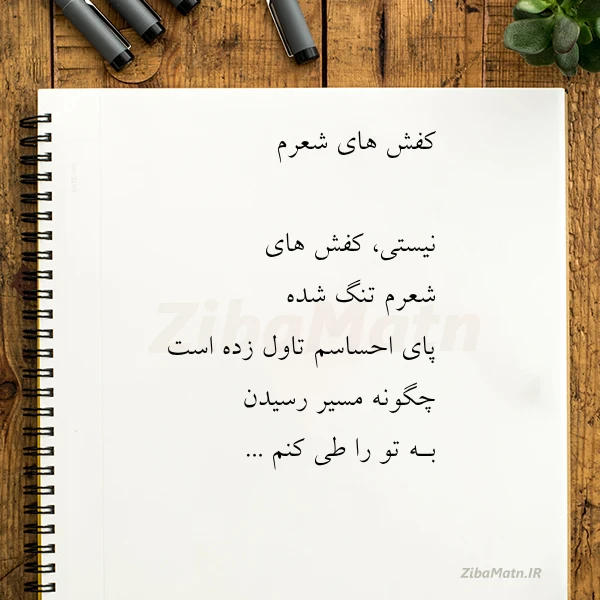 کفش های شعرم
نیستی، کفش های
شعرم تنگ شده
پای احساسم تاول زده است
چگونه مسیر رسیدن
بـه تو را طی کنم ...
ZibaMatn
ZibaMatn.IR